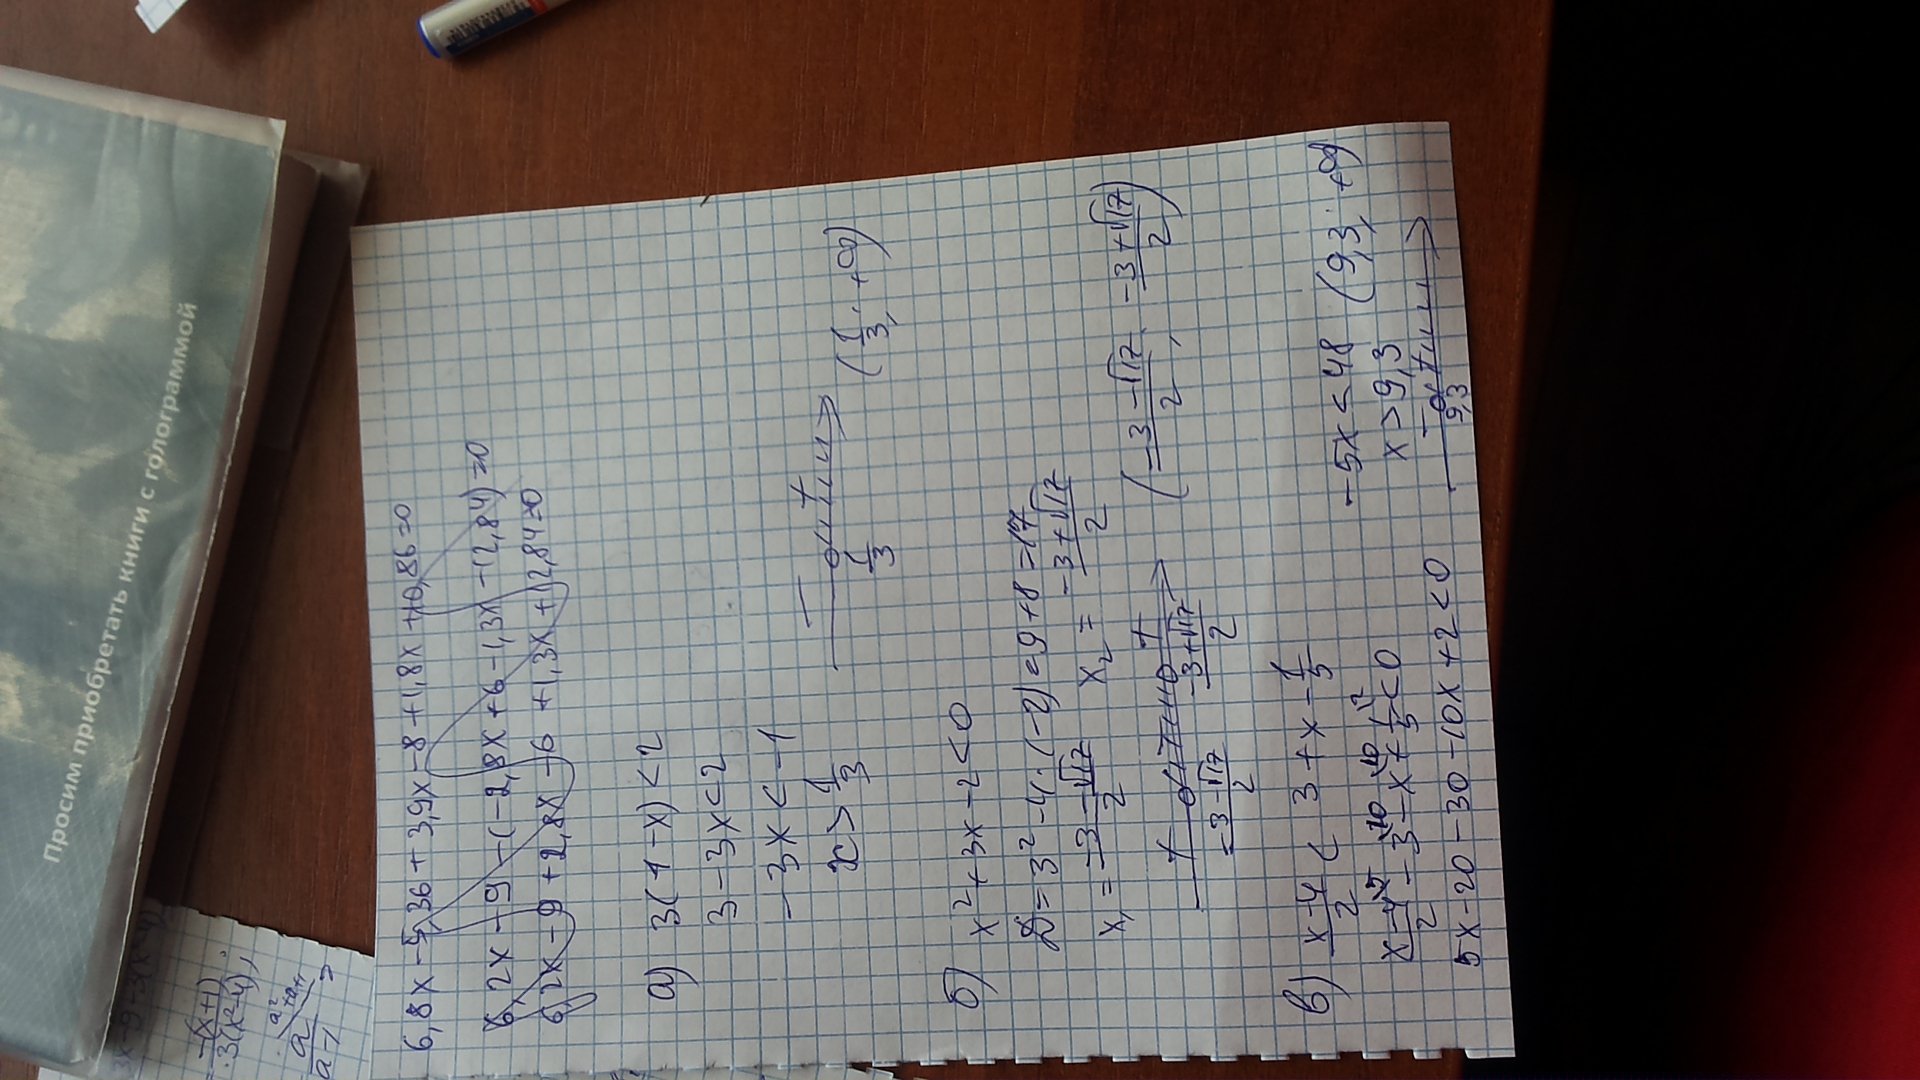 Просим приобретать книги с голограммой
6,8x - 5,36 + 3,9x - 8 + 1,8x + 10,86 = 0
6,2x - 9 - (-2,8x + 6 - 1,3x - 12,84) = 0
6,2x - 9 + 2,8x - 6 + 1,3x + 12,84 = 0
а) 3(1-x) < 2
3 - 3x < 2
-3x < -1
x > 1/3
- +
1/3
(1/3; +∞)
б) x² + 3x - 2 < 0
D = 3² - 4·(-2) = 9 + 8 = 17
x₁ = (-3-√17)/2 x₂ = (-3+√17)/2
(-3-√17)/2 (-3+√17)/2
((-3-√17)/2; (-3+√17)/2)
в) (x-4)/2 < 3 + x - 1/5
(x-4)/2 - 3 - x + 1/5 < 0
5x - 20 - 30 - 10x + 2 < 0
-5x < 48 (9,3; +∞)
x > 9,3
- +
9,3